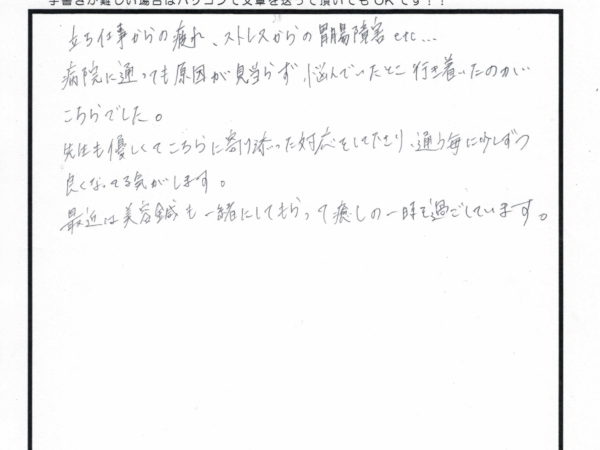 手書きが難しい場合はパソコンで文章を送って頂いてもOKです！！
立ち仕事からの疲れ、ストレスからの胃腸障害etc...
病院に通っても原因が見当らず、悩んでいたとこ行き着いたのがい
こちらでした。
先生も優しくてこちらに寄り添った対応をしてたさり、通う毎に少しずつ
良くなってる気がします。
最近は美容鍼も一緒にしてもらって癒しの一時を過ごしています。